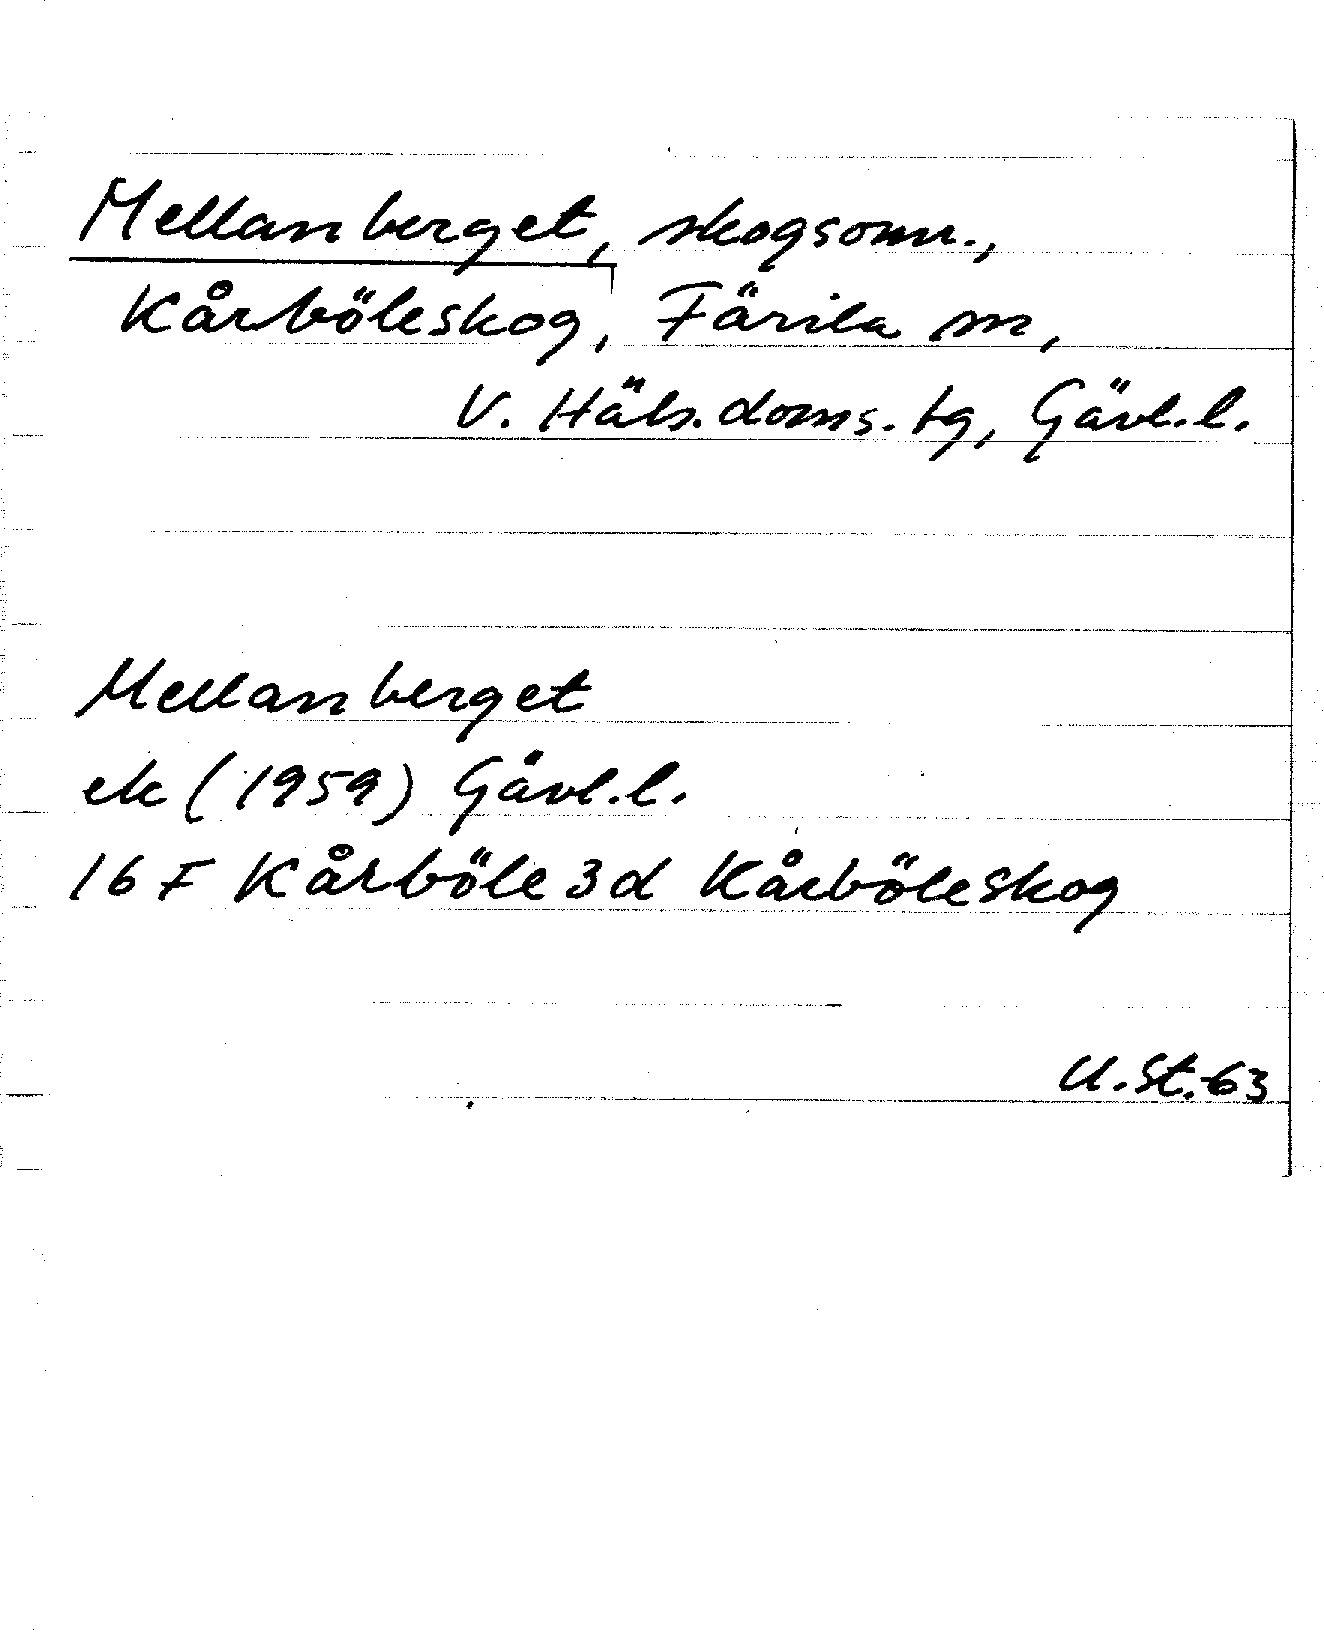 Mellanberget, skogsomr.,
Kårböleskog, Färila sn,
V. Häls. doms. tg, Gävl. l.
Mellanberget
ek (1959) Gävl. l.
16 F Kårböle 3d Kårböleskog
U. St. -63